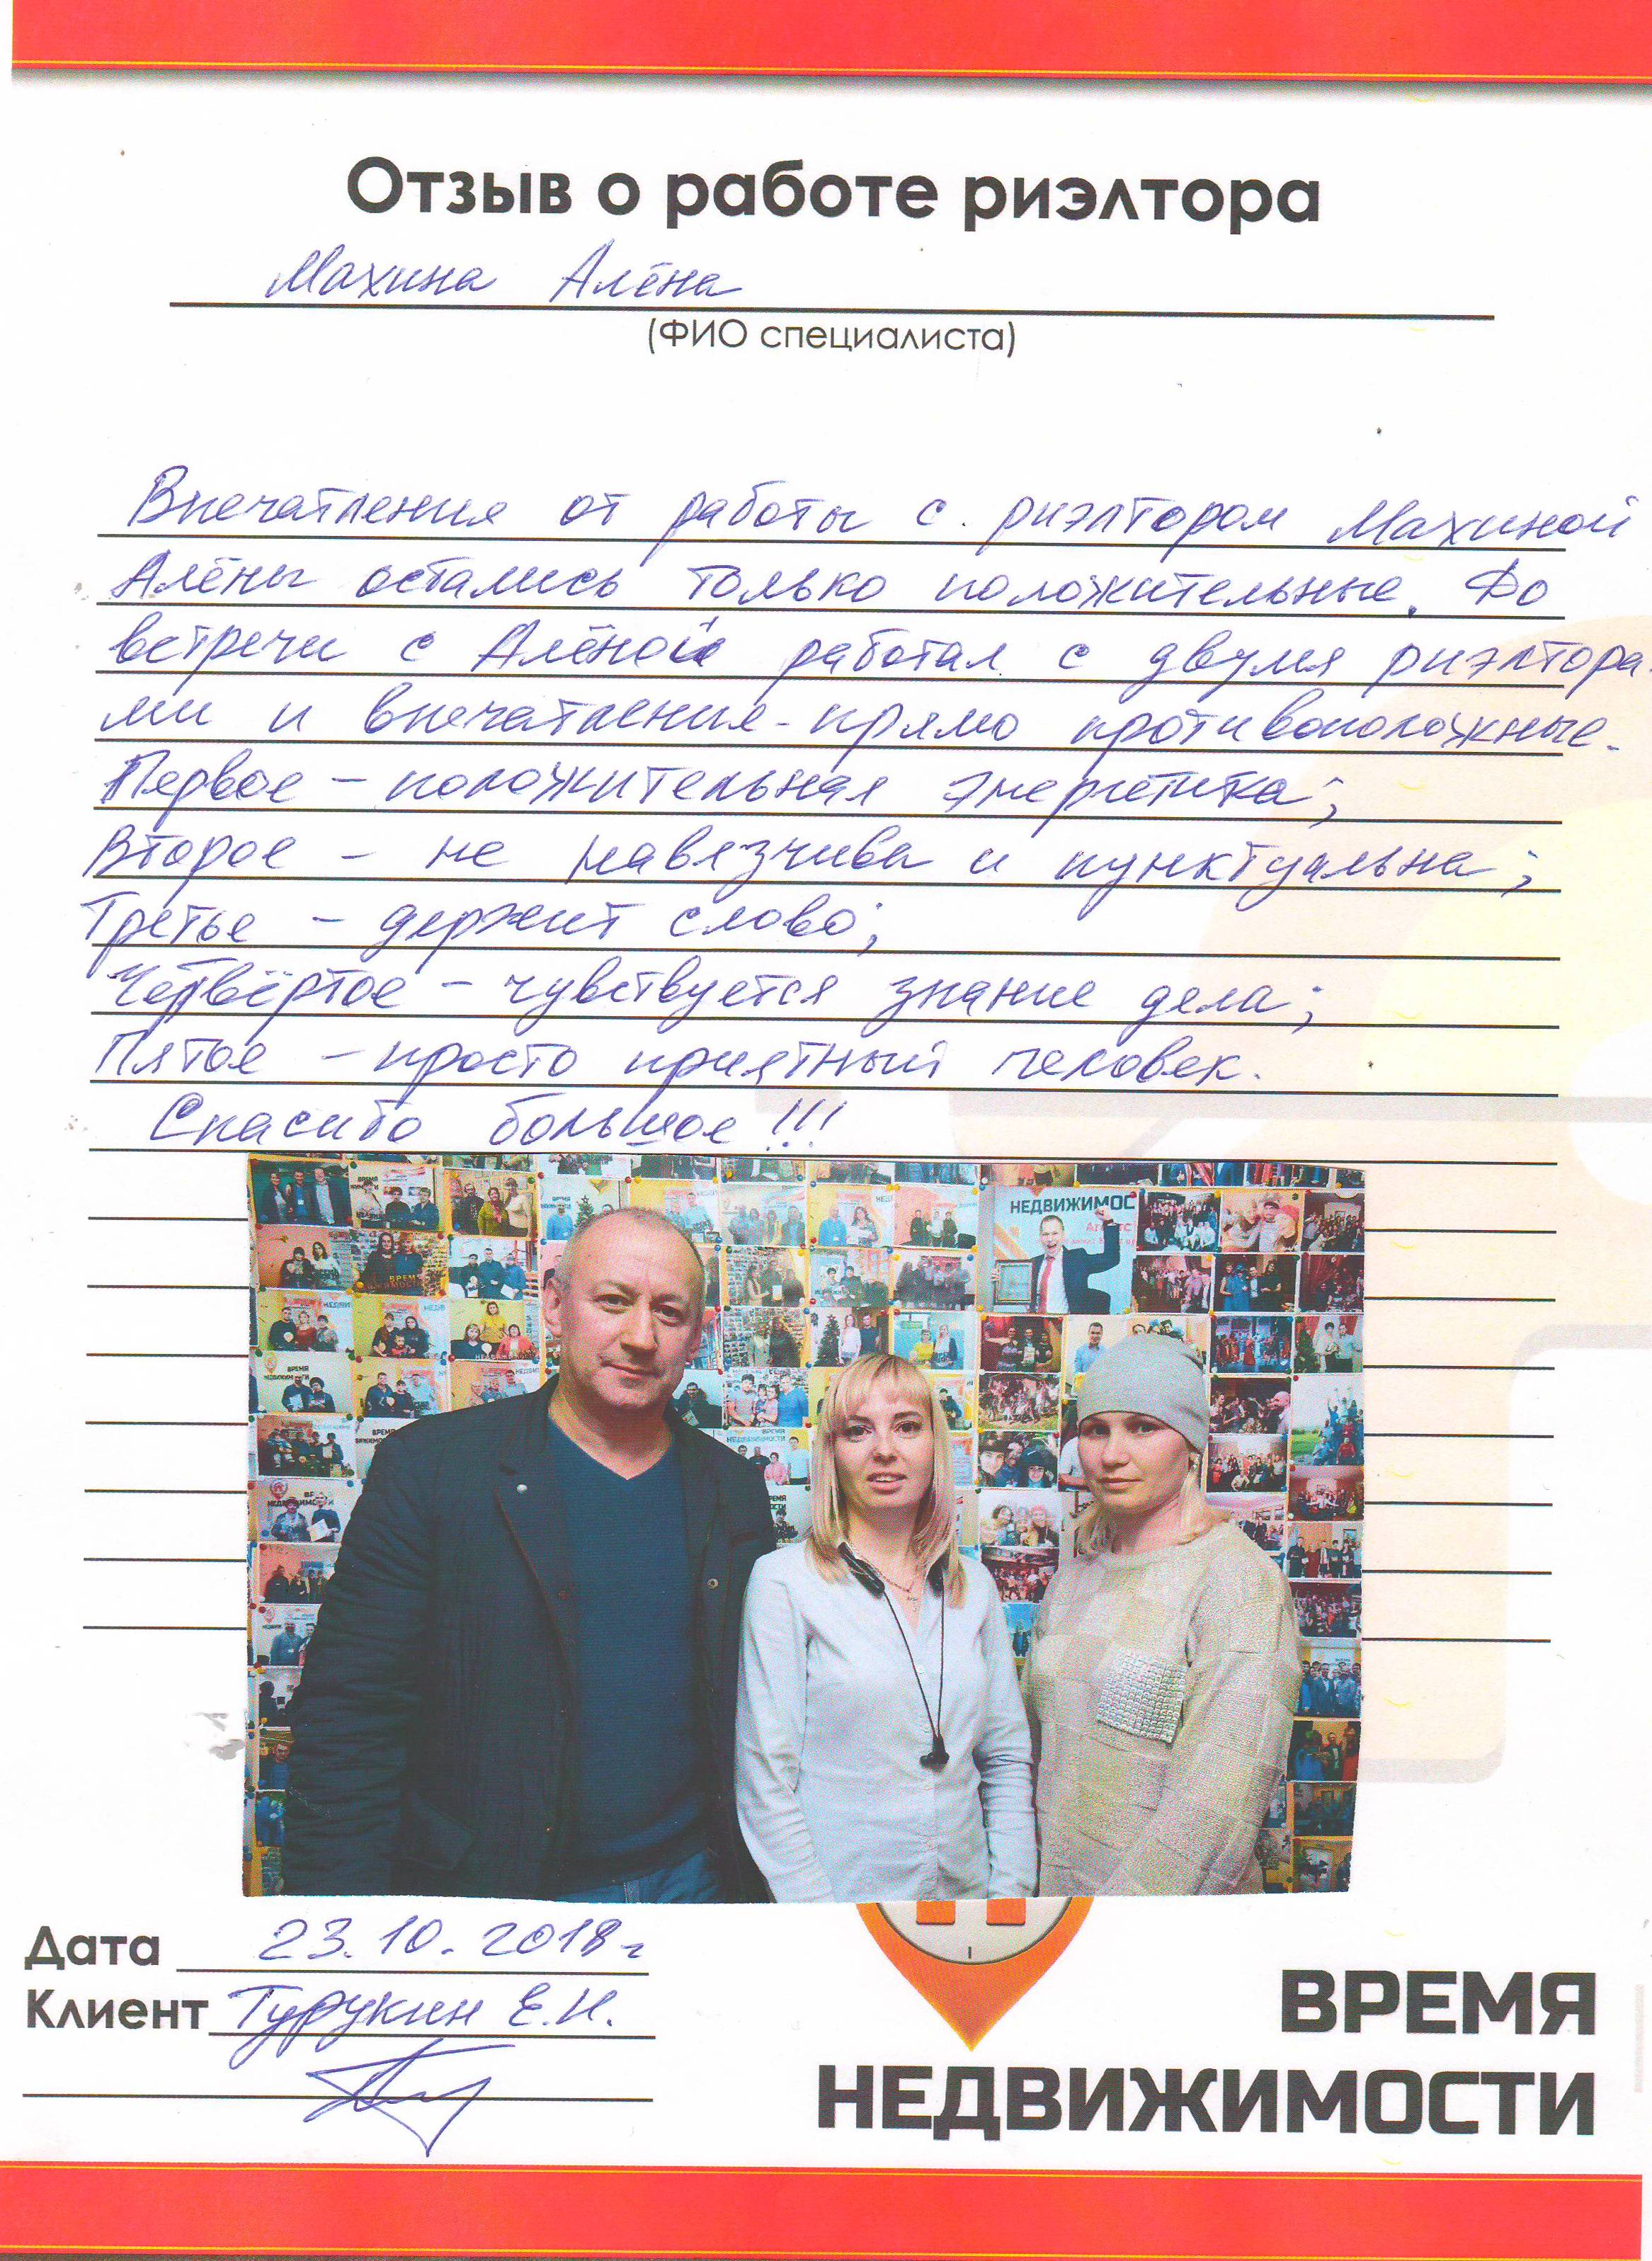 Отзыв о работе риэлтора
Махина Алёна
(ФИО специалиста)
Впечатления от работы с риэлтором Махиной
Алёны остались только положительные. До
встречи с Алёной работал с двумя риэлтора-
ми и впечатления - прямо противоположные.
Первое – положительная энергетика;
Второе – не навязчива и пунктуальна;
Третье – держит слово;
Четвёртое – чувствуется знание дела;
Пятое – просто приятный человек.
Спасибо большое!!!
НЕДВИЖИМОС
Дата 23.10.2018г
Клиент Турукин Е.И.
ВРЕМЯ
НЕДВИЖИМОСТИ